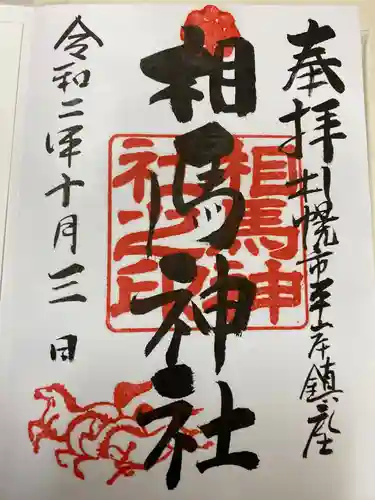 奉拝 札幌市平岸鎮座
相馬神社
相馬神
社之印
令和二年十月三日